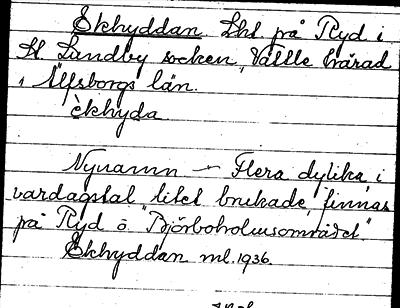 Ekhyddan Lht på Ryd i
St. Lundby socken, Vättle härad
i Älfsborgs län.
èkhyda
Nynamn – Flera dylika, i
vardagstal litet brukade, finnas
på Ryd o. "Björboholmsområdet."
Ekhyddan ml. 1936.